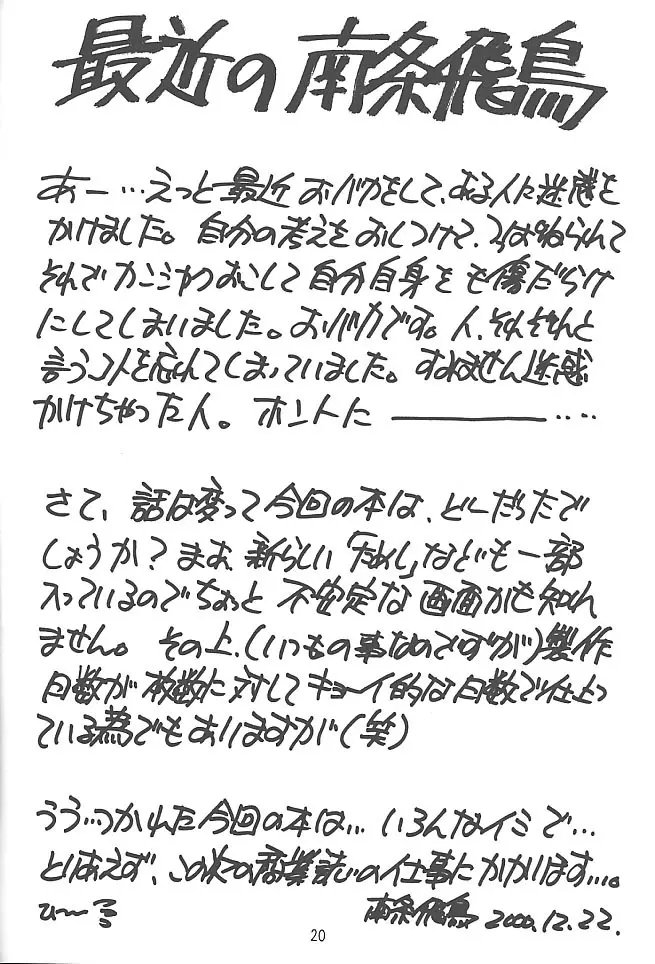 最近の南条飛鳥
あー…えっと最近おバカをして、ある人に迷惑を
かけました。自分の考えをおしつけて、つっぱねられて
それでカンシャクおこして自分自身をも傷だらけ
にしてしまいました。おバカです。人、それぞれと
言うコトを忘れてしまっていました。すみません迷惑
かけちゃった人。ホントに――――――‥‥
さて、話は変って今回の本は、どーだったで
しょうか？まぁ、新らしい「ためし」なども一部
入っているのでちょっと不安定な画面かも知れ
ません。その上、(いつもの事なのですが)製作
日数が枚数に対してキョーイ的な日数で仕上っ
ている為でもありますが(笑)
うう…つかれた今回の本は…いろんなイミで…
とりあえず、この次の商業誌の仕事にかかります…。
ひ〜る
南条飛鳥 2000.12.22.
20